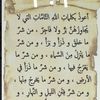 أعوذ بكلمات الله التامات التي لا
يجاوزهن بر ولا فاجر ، من شر
ما خلق ، وذرأ وبرأ ، ومن شر
ما ينزل من السماء ، ومن شر ما
يعرج فيها ، ومن شر ما ذرأ في
الأرض ، ومن شر ما يخرج منها ،
ومن شر فتن الليل والنهار ، ومن